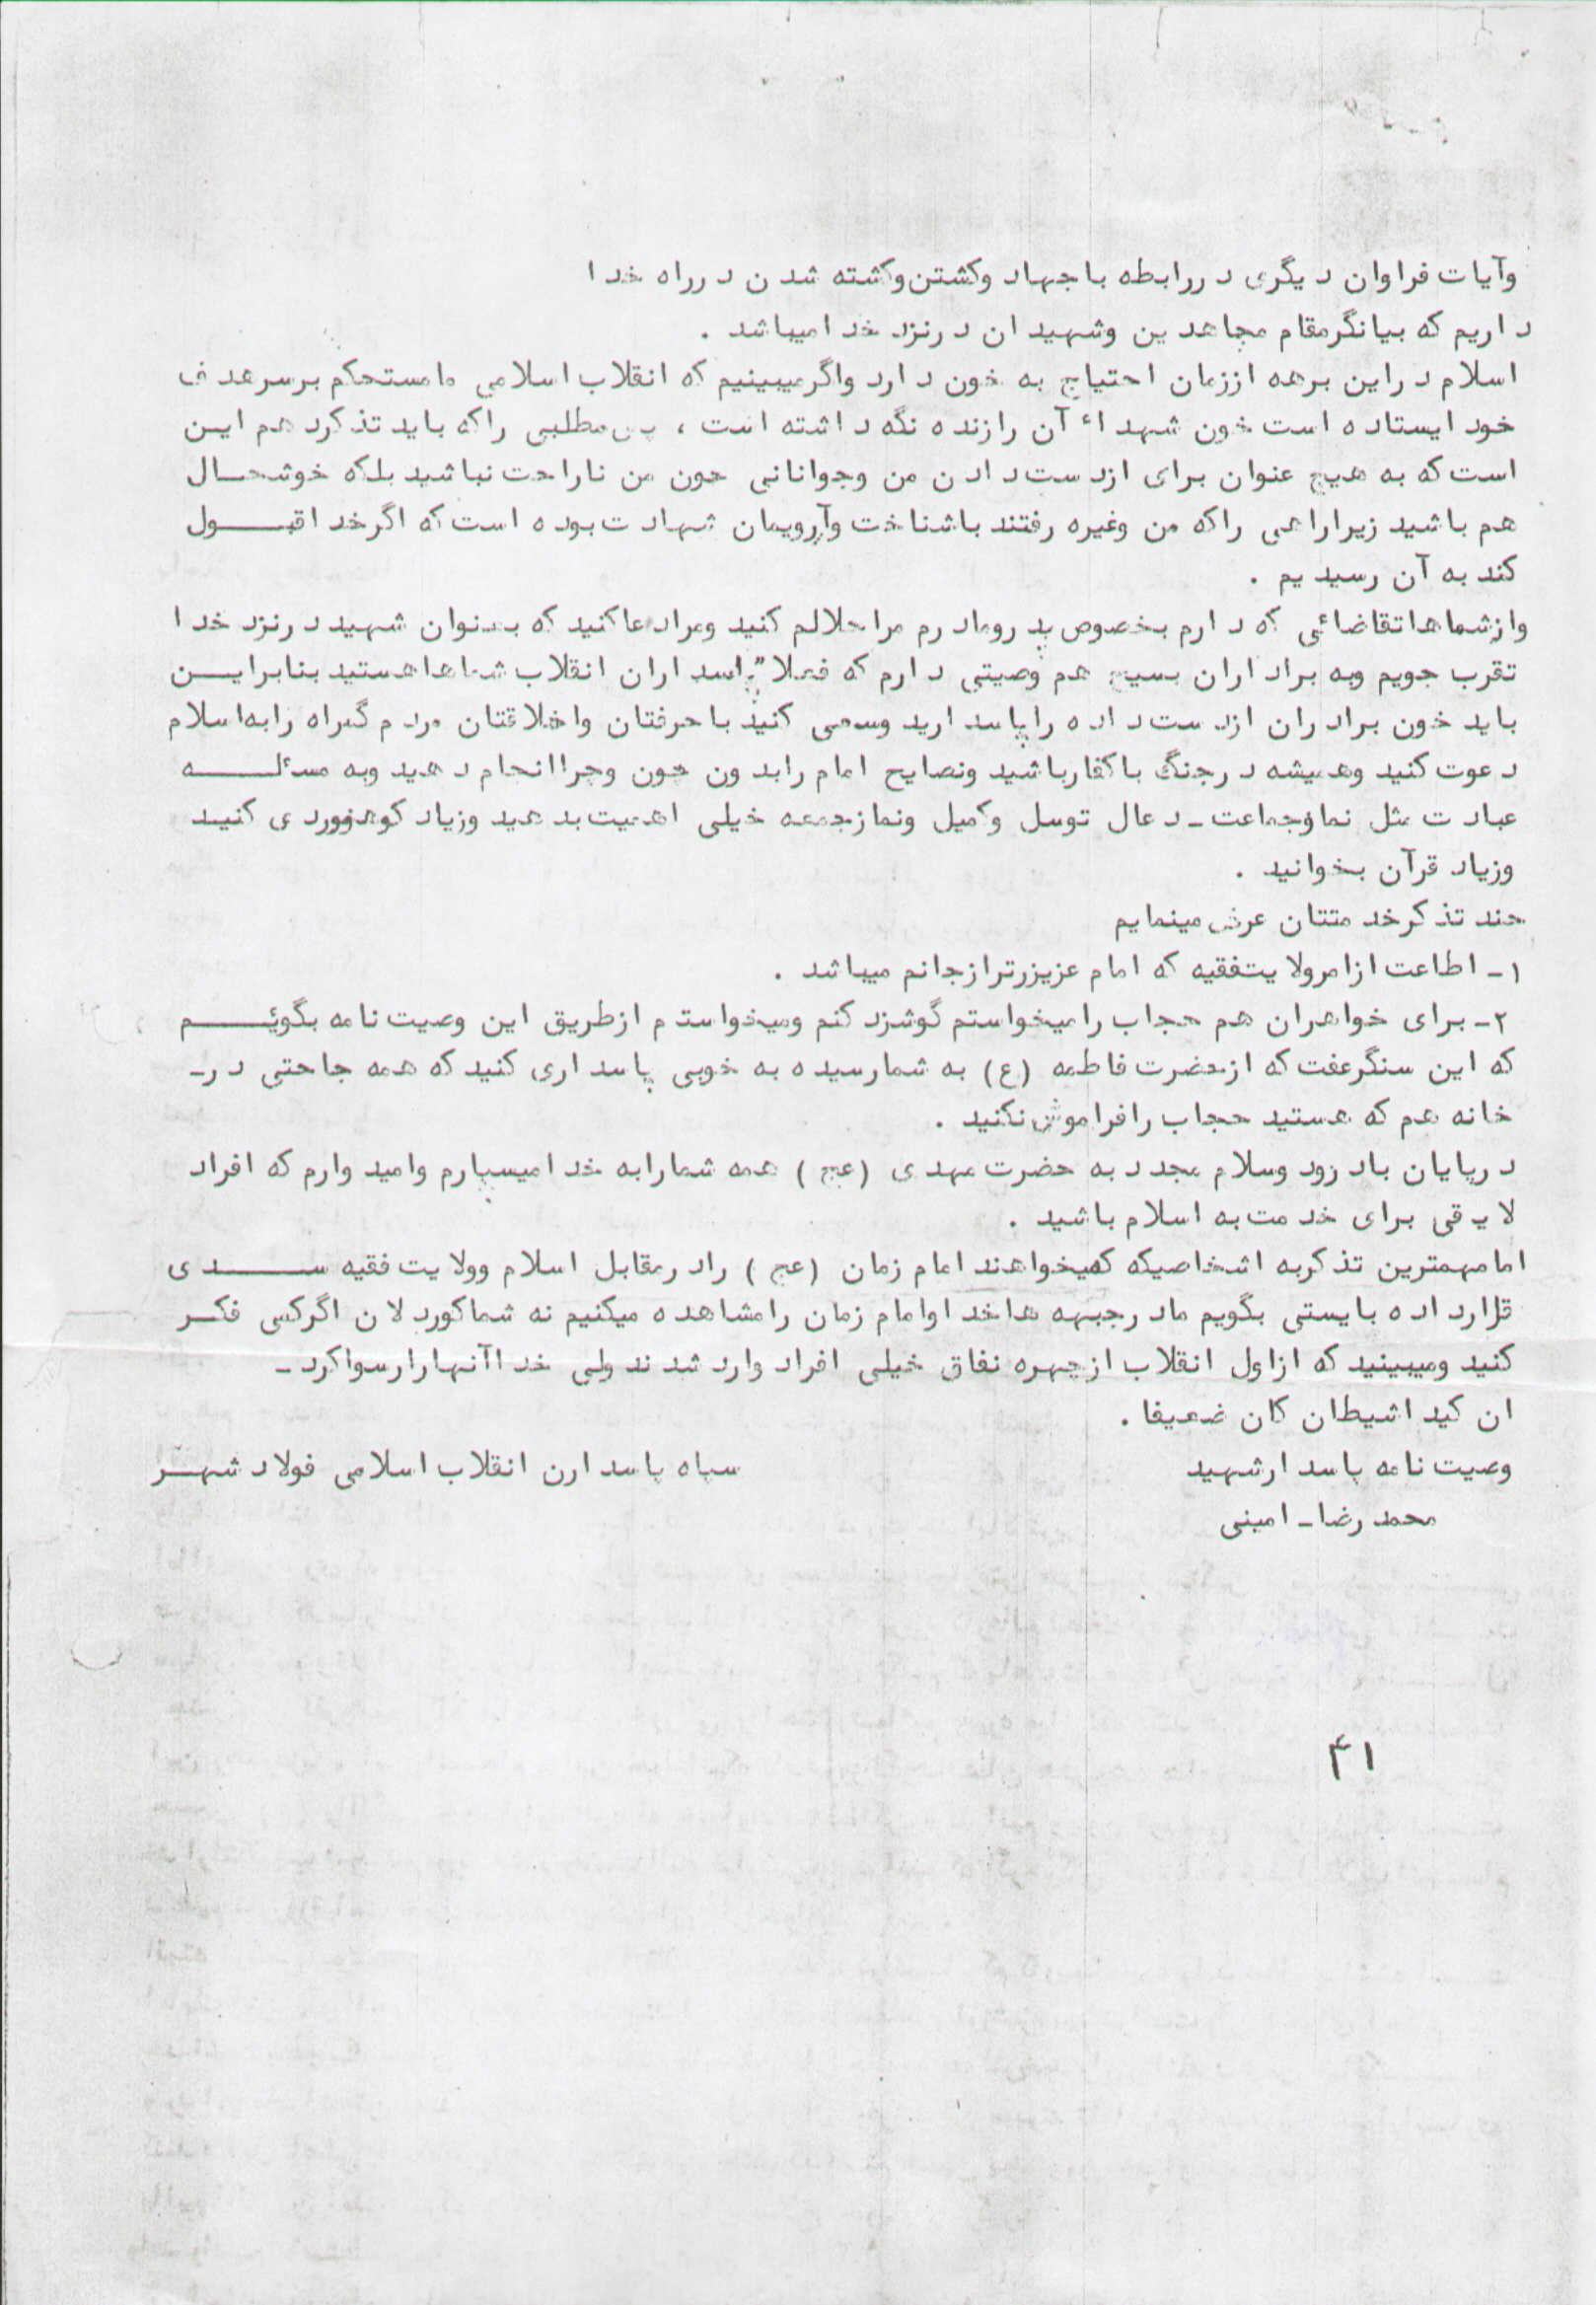 وآیات فراوان دیگری در رابطه با جهاد وکشتن وکشته شدن در راه خدا
داریم که بیانگر مقام مجاهدین وشهیدان در نزد خدا میباشد .
اسلام در این برهه از زمان احتیاج به خون دارد واگر میبینیم که انقلاب اسلامی ما مستحکم بر سر هدف
خود ایستاده است خون شهداء آن را زنده نگه داشته است ، پس مطلبی را که باید تذکر دهم ایـن
است که به هیچ عنوان برای از دست دادن من وجوانانی چون من ناراحت نباشید بلکه خوشحـال
هم باشید زیرا راهی را که من وغیره رفتند با شناخت وآرویمان شهادت بوده است که اگر خدا قبــول
کند به آن رسیدیم .
واز شماها تقاضائی که دارم بخصوص پدر ومادرم مرا حلالم کنید ومرا دعا کنید که بعنوان شهید در نزد خدا
تقرب جویم وبه براداران بسیج هم وصیتی دارم که فعلا" پاسداران انقلاب شماها هستید بنابرایـن
باید خون برادران از دست داده را پاسدارید وسعی کنید با حرفتان واخلاقتان مردم گمراه را به اسلام
دعوت کنید وهمیشه در جنگ با کفار باشید ونصایح امام را بدون چون وچرا انجام دهید وبه مسئلــه
عبادت مثل نماز وجماعت ـ دعال توسل وکمیل ونماز جمعه خیلی اهمیت بدهید وزیاد کوهنوردی کنید
وزیاد قرآن بخوانید .
چند تذکر خدمتتان عرض مینمایم
۱ـ اطاعت از امر ولایتفقیه که امام عزیزرتر از جانم میباشد .
۲ـ برای خواهران هم حجاب را میخواستم گوشزد کنم ومیخواستم از طریق این وصیت نامه بگوئــم
که این سنگر عفت که از حضرت فاطمه (ع) به شما رسیده به خوبی پاسداری کنید که همه جا حتی در ـ
خانه هم که هستید حجاب را فراموش نکنید .
در پایان با درود وسلام مجدد به حضرت مهدی (عج) همه شما را به خدا میسپارم وامید وارم که افراد
لایقی برای خدمت به اسلام باشید .
اما مهمترین تذکر به اشخاصیکه که میخواهند امام زمان (عج) را در مقابل اسلام وولایت فقیه ســدی
قرار داده بایستی بگویم ما در جبهه ها خدا وامام زمان را مشاهده میکنیم نه شما کوردلان اگر کسی فکـر
کنید ومیبینید که از اول انقلاب از چهره نفاق خیلی افراد وارد شدند ولی خدا آنها را رسوا کرد ـ
ان کید اشیطان کان ضعیفا .
وصیت نامه پاسدار شهید سپاه پاسدارن انقلاب اسلامی فولاد شهـر
محمد رضا ـ امینی
۴۱